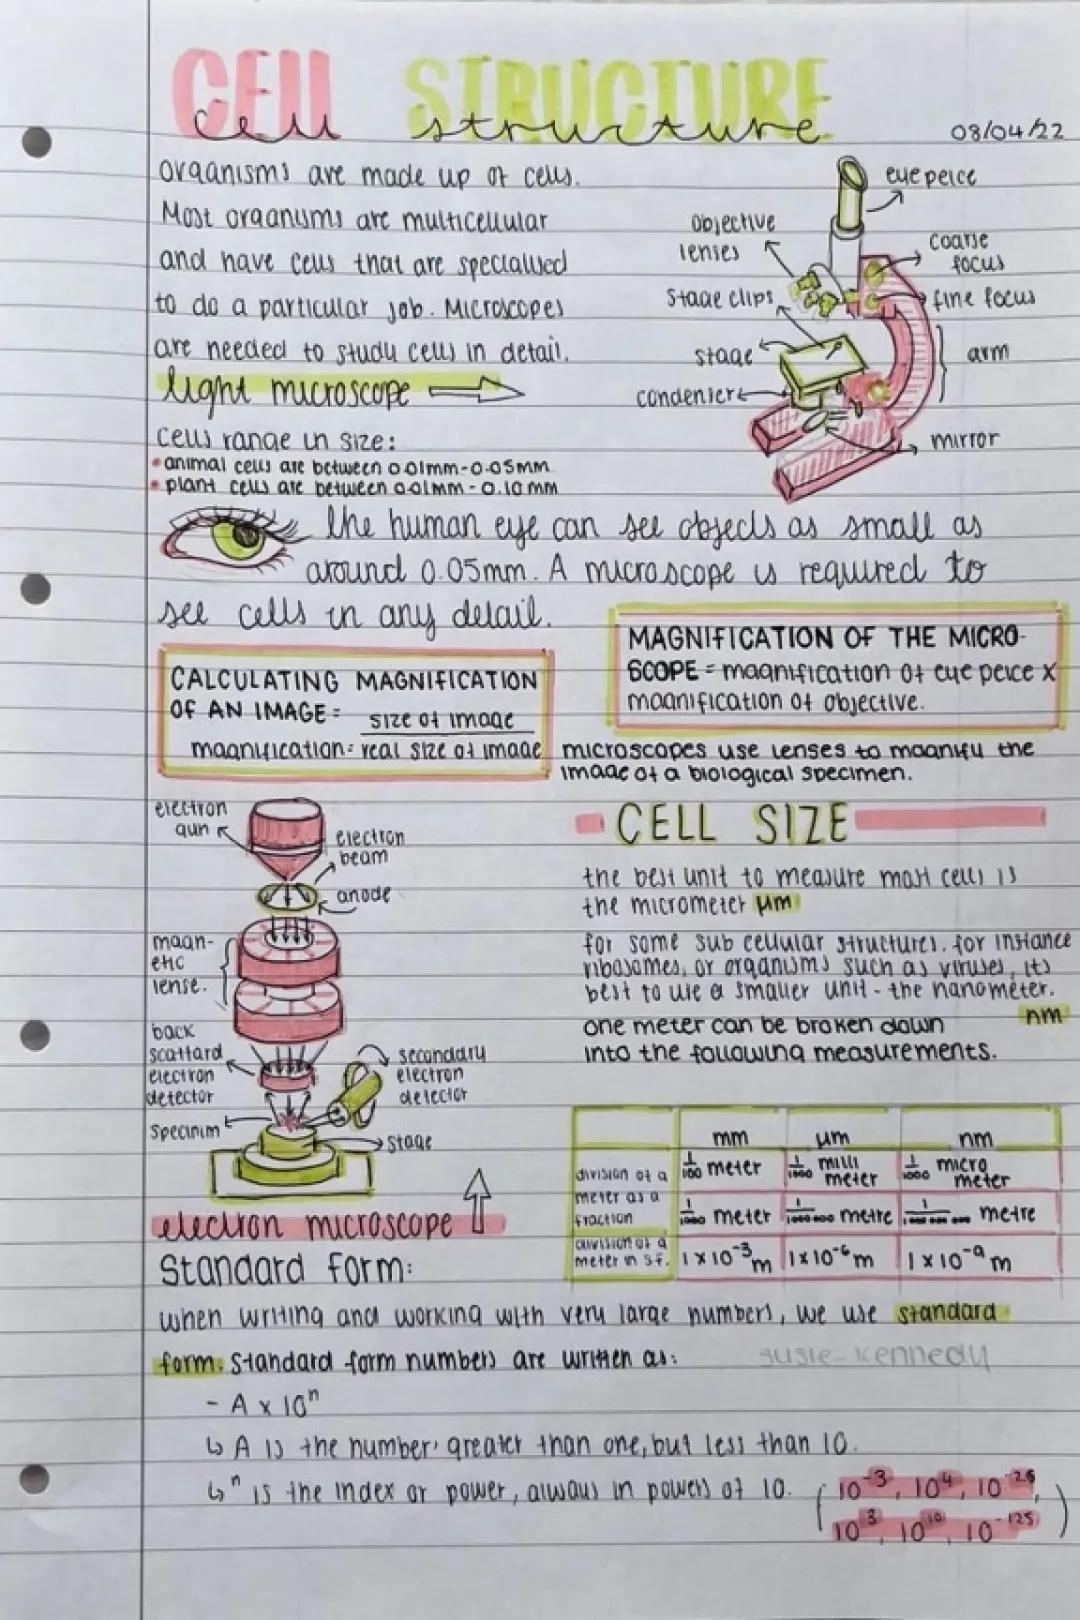 CELL STRUCTURE
cell structure
03/04/22
organisms are made up of cells.
Most organisms are multicellular
and have cells that are specialised
to do a particular job. Microscopes
are needed to study cells in detail.
light microscope
cells range in size:
• animal cells are between 0.01mm-0.05mm
• plant cells are between 0.01mm - 0.10mm
eye peice
objective
lenses
coarse
focus
stage clips
fine focus
stage
arm
condenser
mirror
the human eye can see objects as small as
around 0.05mm. A microscope is required to
see cells in any detail.
CALCULATING MAGNIFICATION
OF AN IMAGE =
size of image
magnification= real size of image
MAGNIFICATION OF THE MICRO-
SCOPE = magnification of eye peice x
magnification of objective.
microscopes use lenses to magnify the
image of a biological specimen.
electron
gun
electron
beam
anode
magn-
etic
lense.
back
scattard
electron
detector
secondary
electron
detector
specinim
stage
electron microscope
CELL SIZE
the best unit to measure most cells is
the micrometer µm
for some sub cellular structures, for instance
ribosomes, or organisms such as viruses, its
best to use a smaller unit - the nanometer.
nm
one meter can be broken down
into the following measurements.
mm µm nm
division of a
meter as a
fraction
1/100 meter 1/1000 milli meter 1/1000 micro meter
1/1000 meter 1/1000 000 metre 1/1000 000 000 metre
division of a
meter in s.f.
1 x 10⁻³ m 1 x 10⁻⁶ m 1 x 10⁻⁹ m
Standard form:
when writing and working with very large numbers, we use standard
form. Standard form numbers are written as:
susie-kennedy
- A x 10ⁿ
↳ A is the number, greater than one, but less than 10.
↳ n is the index or power, always in powers of 10.
(10⁻³, 10⁴, 10⁻²⁶,
10³, 10¹⁰, 10⁻¹²⁵)